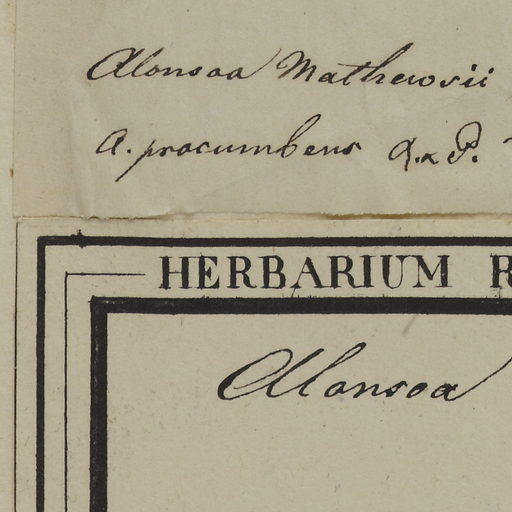 Alonsoa Mathewsii
A. procumbens R. & P.
HERBARIUM R
Alonsoa